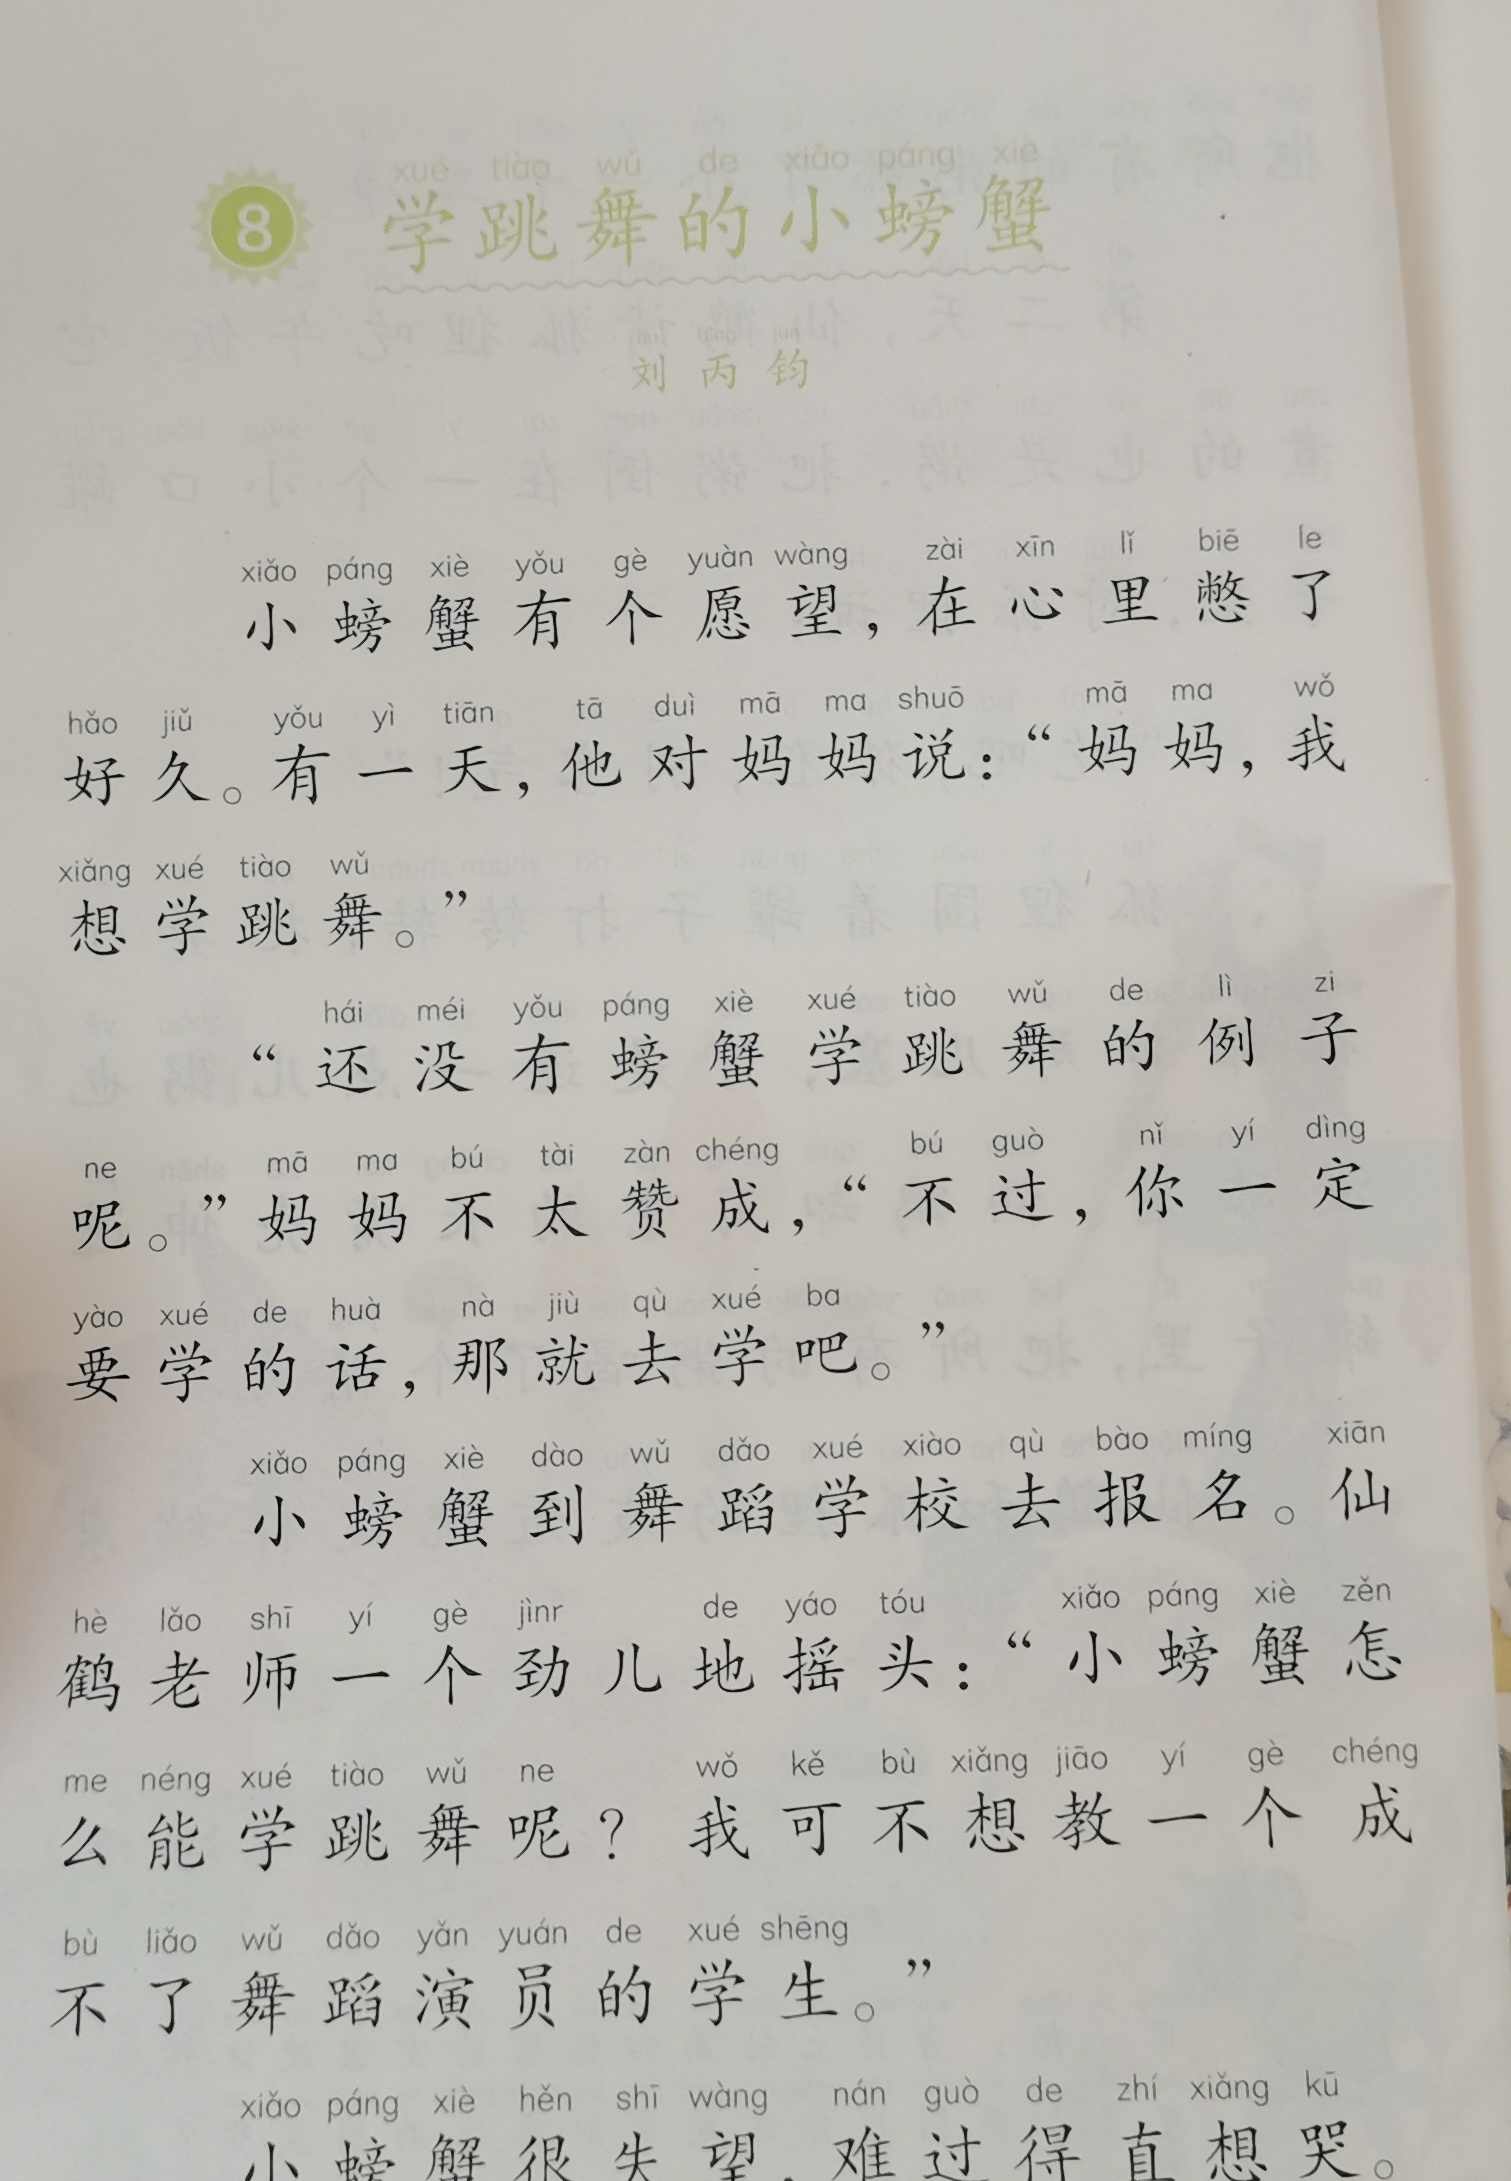 8
xué tiào wǔ de xiǎo páng xiè
学跳舞的小螃蟹
刘丙钧
xiǎo páng xiè yǒu gè yuàn wàng zài xīn lǐ biē le
小螃蟹有个愿望，在心里憋了
hǎo jiǔ yǒu yì tiān tā duì mā ma shuō mā ma wǒ
好久。有一天，他对妈妈说：“妈妈，我
xiǎng xué tiào wǔ
想学跳舞。”
hái méi yǒu páng xiè xué tiào wǔ de lì zi
“还没有螃蟹学跳舞的例子
ne mā ma bú tài zàn chéng bú guò nǐ yí dìng
呢。”妈妈不太赞成，“不过，你一定
yào xué de huà nà jiù qù xué ba
要学的话，那就去学吧。”
xiǎo páng xiè dào wǔ dǎo xué xiào qù bào míng xiān
小螃蟹到舞蹈学校去报名。仙
hè lǎo shī yí gè jìnr de yáo tóu xiǎo páng xiè zěn
鹤老师一个劲儿地摇头：“小螃蟹怎
me néng xué tiào wǔ ne wǒ kě bù xiǎng jiāo yí gè chéng
么能学跳舞呢？我可不想教一个成
bù liǎo wǔ dǎo yǎn yuán de xué shēng
不了舞蹈演员的学生。”
xiǎo páng xiè hěn shī wàng nán guò de zhí xiǎng kū
小螃蟹很失望，难过得直想哭。